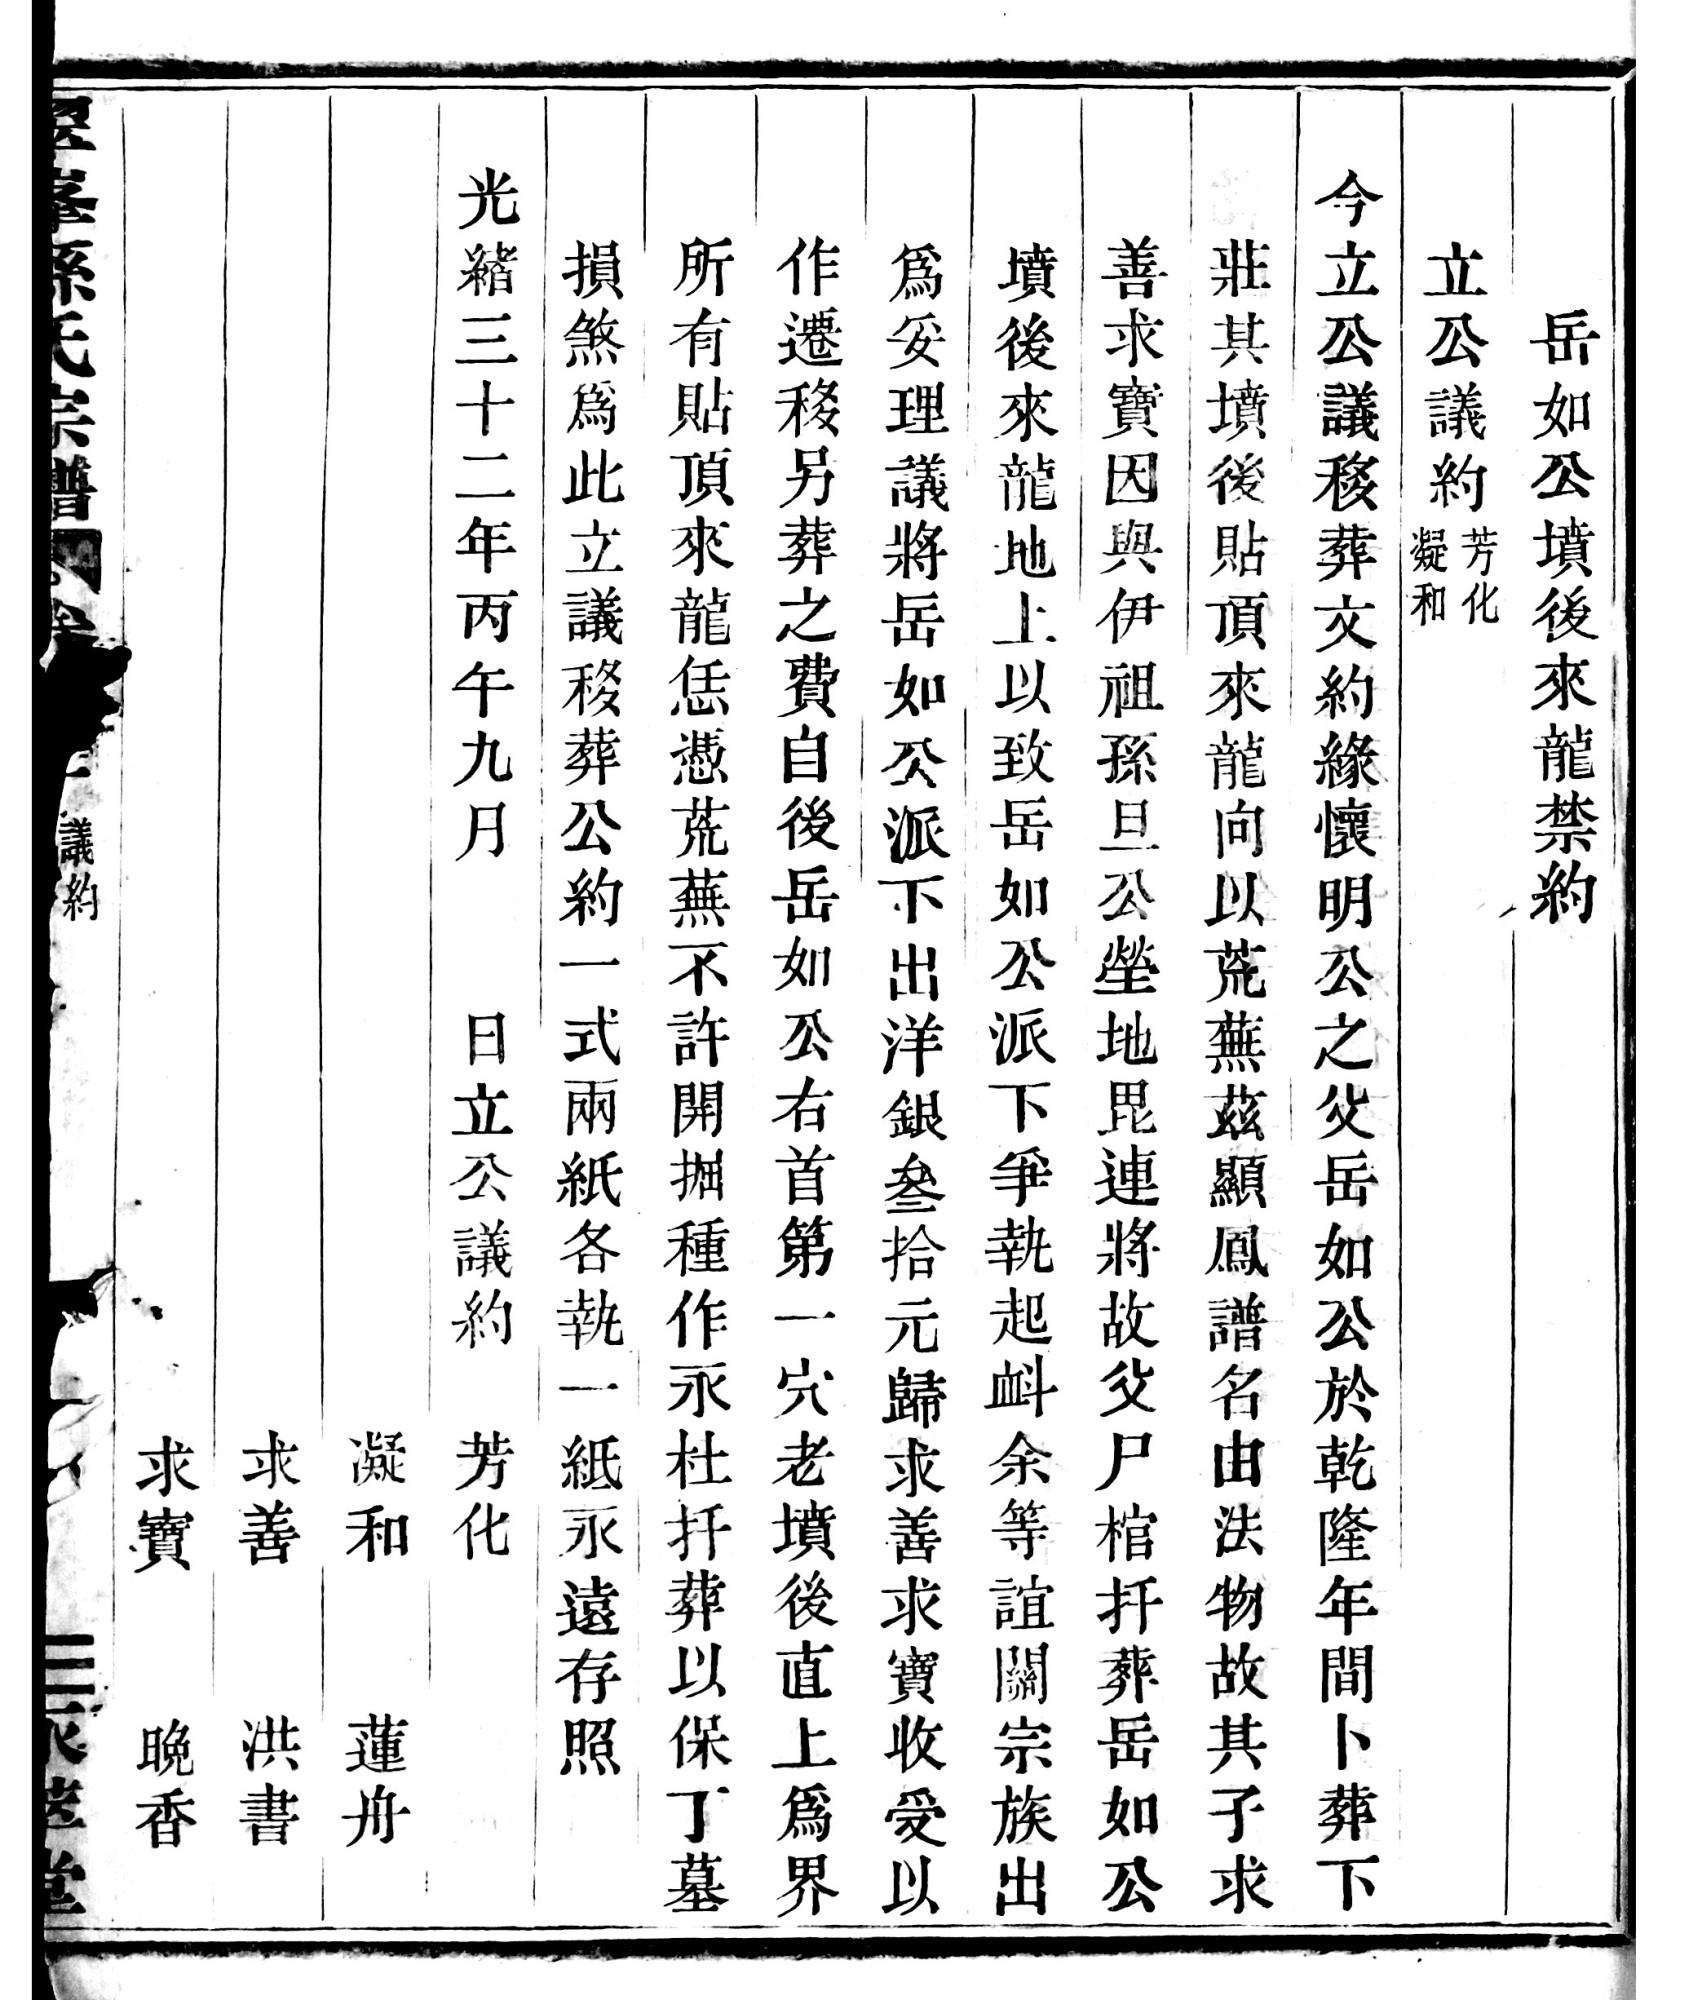 岳如公墳後來龍禁約
立公議約芳化凝和
今立公議移葬文約緣懷明公之父岳如公於乾隆年間卜葬下
莊其墳後貼頂來龍向以荒蕪茲顯鳳譜名由法物故其子求
善求寶因與伊祖孫旦公塋地毘連將故父尸棺扦葬岳如公
墳後來龍地上以致岳如公派下爭執起衅余等誼關宗族出
爲妥理議將岳如公派下出洋銀叄拾元歸求善求寶收受以
作遷移另葬之費自後岳如公右首第一穴老墳後直上爲界
所有貼頂來龍恁憑荒蕪不許開掘種作永杜扦葬以保丁墓
損煞爲此立議移葬公約一式兩紙各執一紙永遠存照
光緒三十二年丙午九月 日立公議約 芳化
凝和 蓮舟
求善 洪書
求寶 晚香
孫氏宗譜 議約 堂